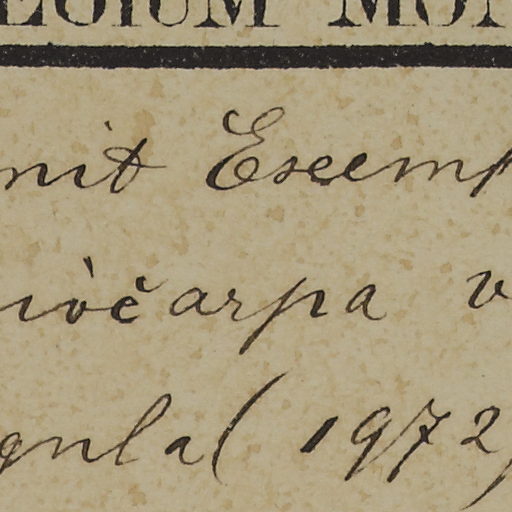 EGIUM MON
nit Exemp
iòčarpa v
gula (1972)